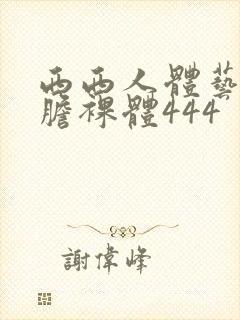 西西人體藝
膽裸體444
謝偉峰